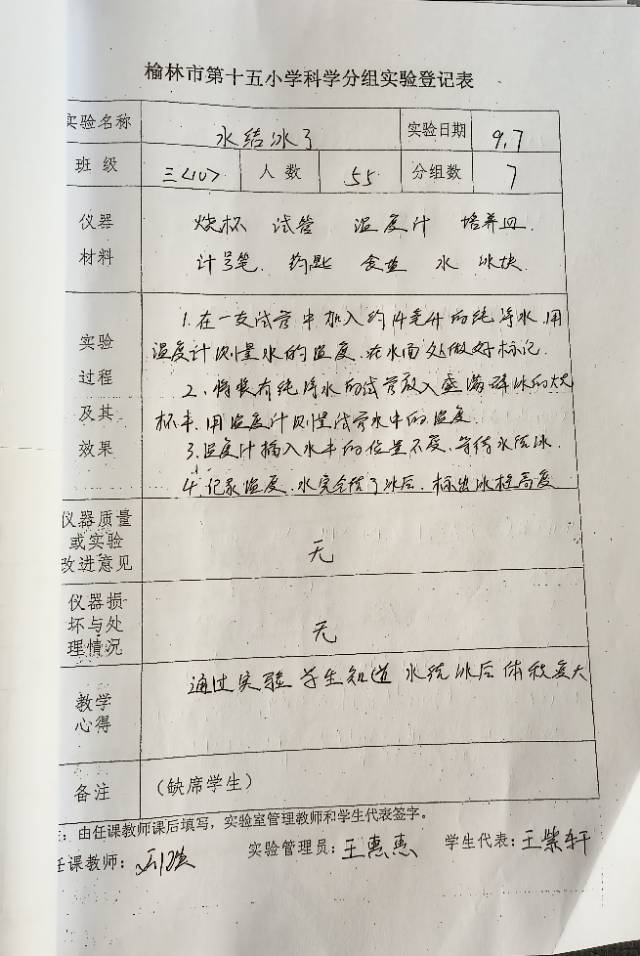 榆林市第十五小学科学分组实验登记表
实验名称 水结冰了 实验日期 9.7
班级 三<10> 人数 55 分组数 7
仪器 烧杯 试管 温度计 培养皿
材料 计号笔 药匙 食盐 水 冰块
1.在一支试管中加入约14毫升的纯净水.用
实验 温度计测量水的温度.在水面处做好标记.
过程 2、将装有纯净水的试管放入盛满碎冰的大烧
及其 杯中.用温度计测量试管水中的温度.
效果 3.温度计插入水中的位置不变.等待水结冰.
4.记录温度.水完全结了冰后.标出冰柱高度
仪器质量
或实验
改进意见 无
仪器损
坏与处 无
理情况
通过实验 学生知道 水结冰后 体积变大
教学
心得
备注 (缺席学生)
注:由任课教师课后填写,实验室管理教师和学生代表签字。
任课教师: 实验管理员:王惠惠 学生代表:王紫轩